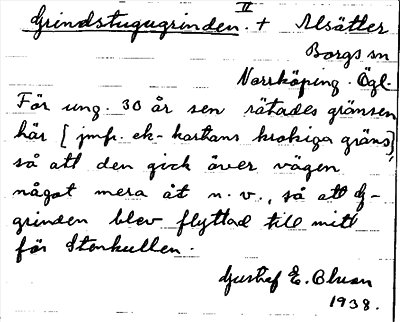 Grindstugugrinden. II + Alsätter
Borgs sn
Norrköping. Ögl.
För ung. 30 år sen rätades gränsen
här [jmfr. ek-kartans krokiga gräns],
så att den gick över vägen
något mera åt n.v., så att G-
grinden blev flyttad till mitt
för Stenkullen.
Gustaf E. Bluan
1938.